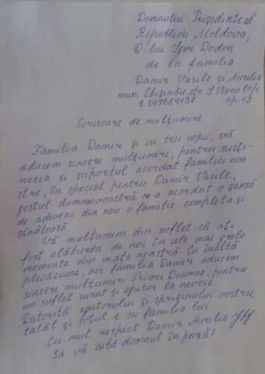 Domnului Președinte al
Republicii Moldova,
D-lui Igor Dodon
de la familia
Damir Vasile și Aurelia
mun. Chișinău str.
Scrisoare de mulțumire
Familia Damir și cu trei copii, vă
aducem sincere mulțumire, pentru susți-
nerea și suportul acordat familiei noa-
stre, în special pentru Damir Vasile,
gestul dumneavoastră ne-a acordat o șansă
de a deveni din nou o familie completă și
sănătoasă.
Vă mulțumim din suflet că ați
fost alături de noi în cele mai grele
momente din viața noastră. Cu înaltă
plecăciune, noi familia Damir aducem
sincere mulțumiri Prima Doamna, pentru
un suflet curat și ajutor la nevoie
Datorită ajutorului și sprijinului vostru,
tatăl și soțul e cu familia lui
Cu mult respect Damir Aurelia
Să vă aibă domnul în pază!